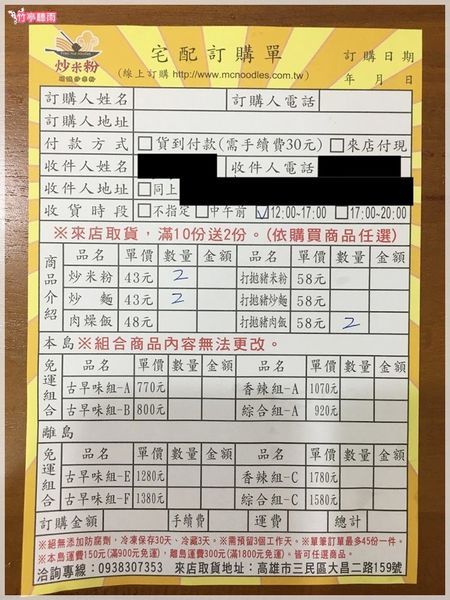 竹亭聽雨
炒米粉
宅配訂購單
(線上訂購 http://www.mcnoodles.com.tw)
訂購日期
年 月 日
訂購人姓名 訂購人電話
訂購人地址
付款方式 □貨到付款(需手續費30元) □來店付現
收件人姓名 收件人電話
收件人地址 □同上
收貨時段 □不指定 □中午前 ☑12:00~17:00 □17:00~20:00
※來店取貨，滿10份送2份。(依購買商品任選)
商品介紹 品名 單價 數量 金額 品名 單價 數量 金額
炒米粉 43元 2 打拋豬米粉 58元
炒麵 43元 2 打拋豬炒麵 58元
肉燥飯 48元 打拋豬肉飯 58元 2
本島※組合商品內容無法更改。
免運組合 品名 單價 數量 金額 品名 單價 數量 金額
古早味組-A 770元 香辣組-A 1070元
古早味組-B 800元 綜合組-A 920元
離島
免運組合 品名 單價 數量 金額 品名 單價 數量 金額
古早味組-E 1280元 香辣組-C 1780元
古早味組-F 1380元 綜合組-C 1580元
訂購金額 手續費 運費 總計
※絕無添加防腐劑，冷凍保存30天、冷藏3天。※需預留3個工作天。※單筆訂單最多45份一件。
※本島運費150元(滿900元免運)，離島運費300元(滿1800元免運)。皆可任選商品。
洽詢專線：0938307353 來店取貨地址：高雄市三民區大昌二路159號